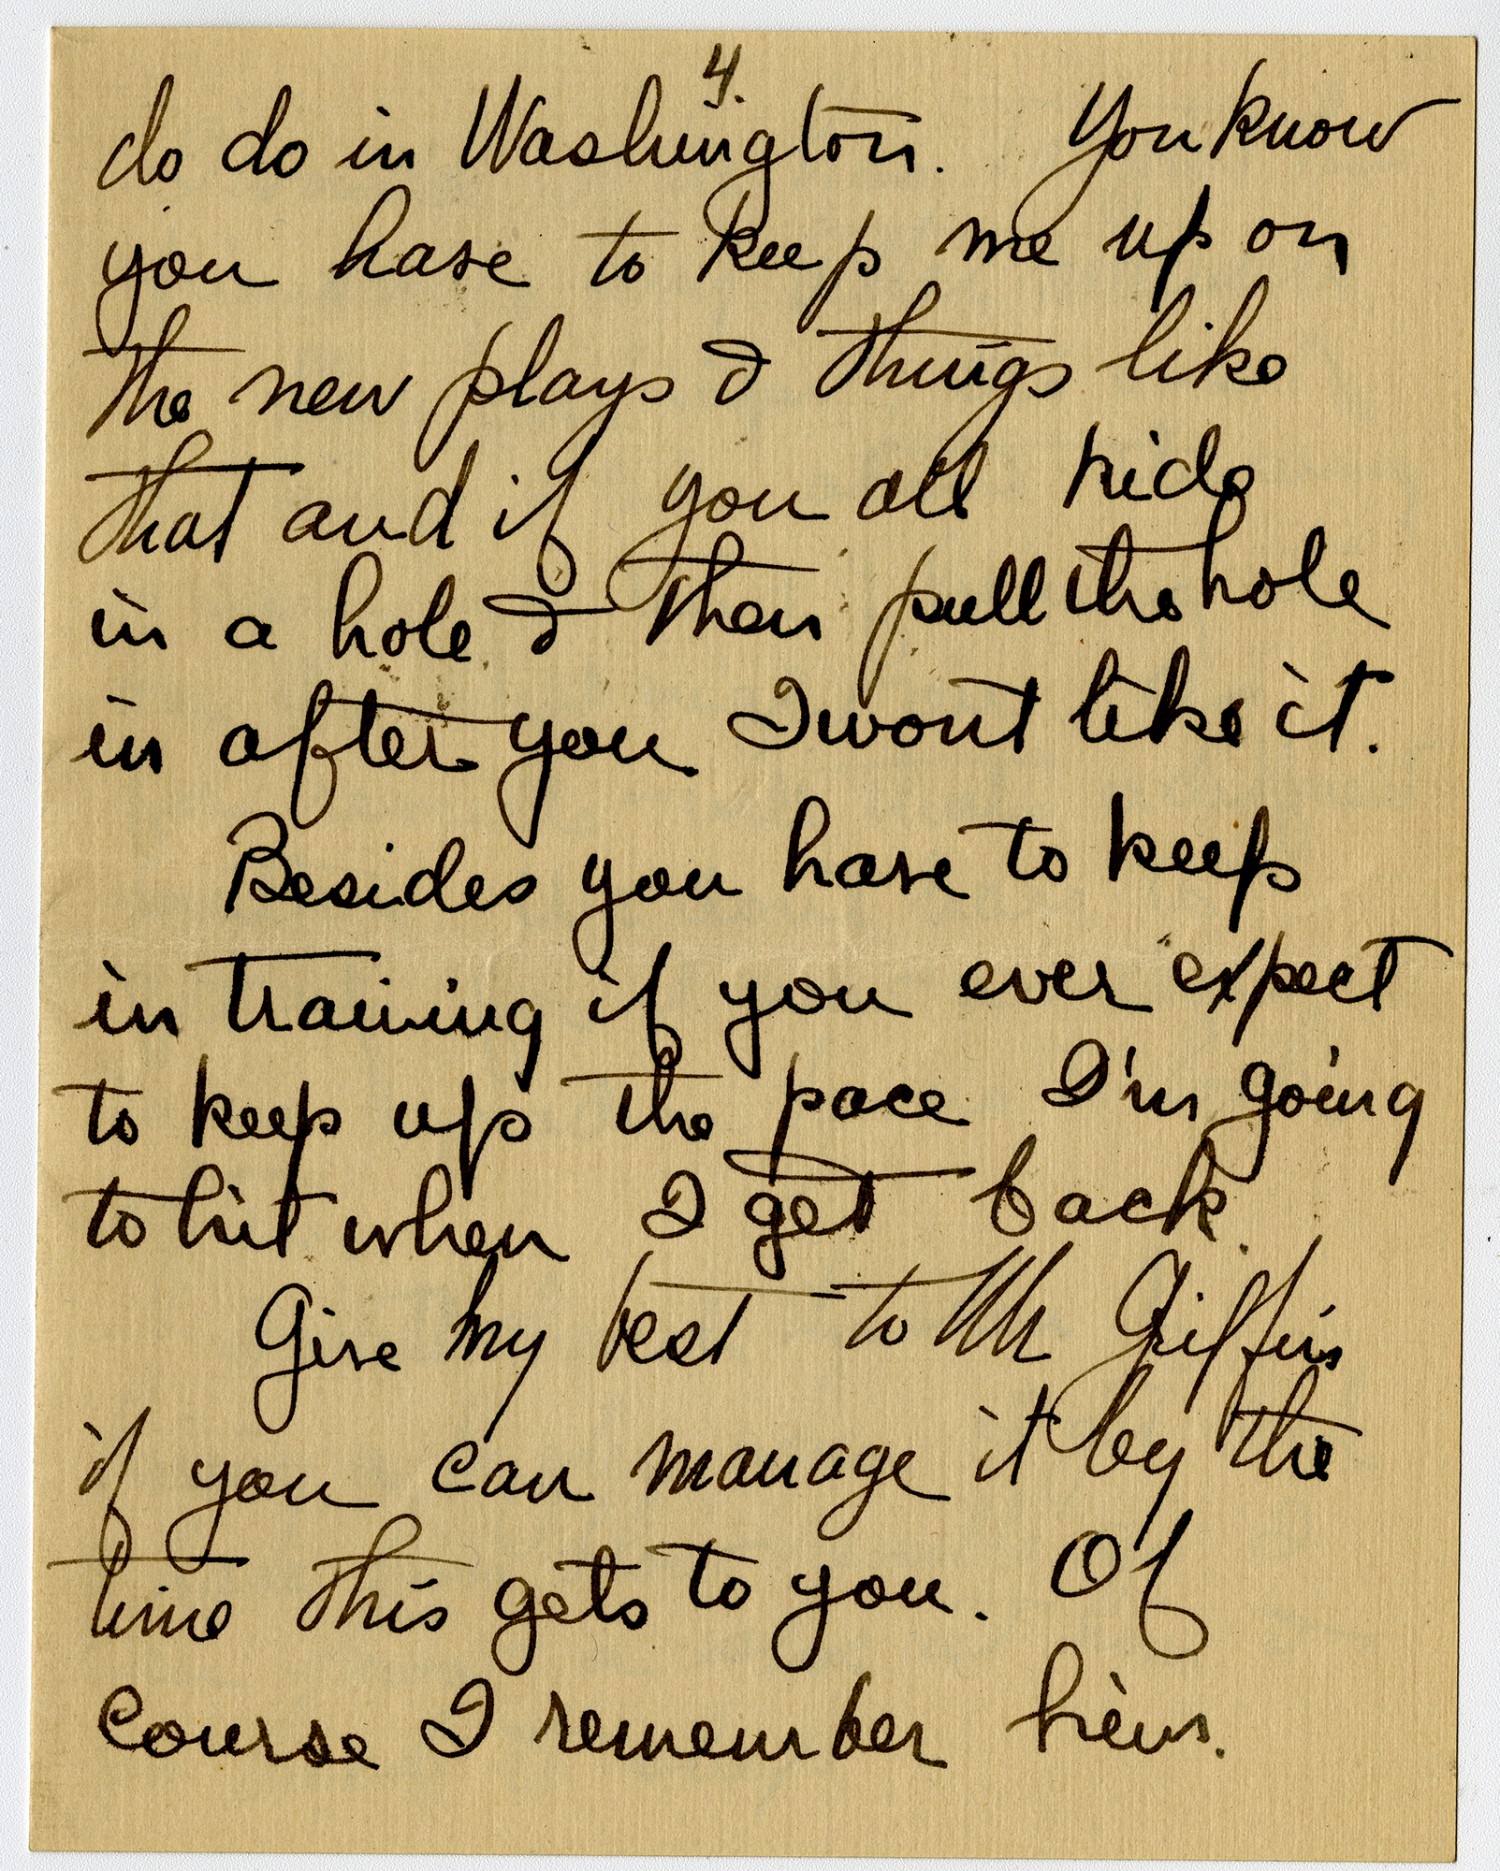 4.
do do in Washington. You know
you have to keep me up on
the new plays & things like
that and if you all hide
in a hole & then pull the hole
in after you I wont like it.
Besides you have to keep
in training if you ever expect
to keep up the pace I'm going
to hit when I get back.
Give my best to Mr Griffin
if you can manage it by the
time this gets to you. Of
course I remember him.